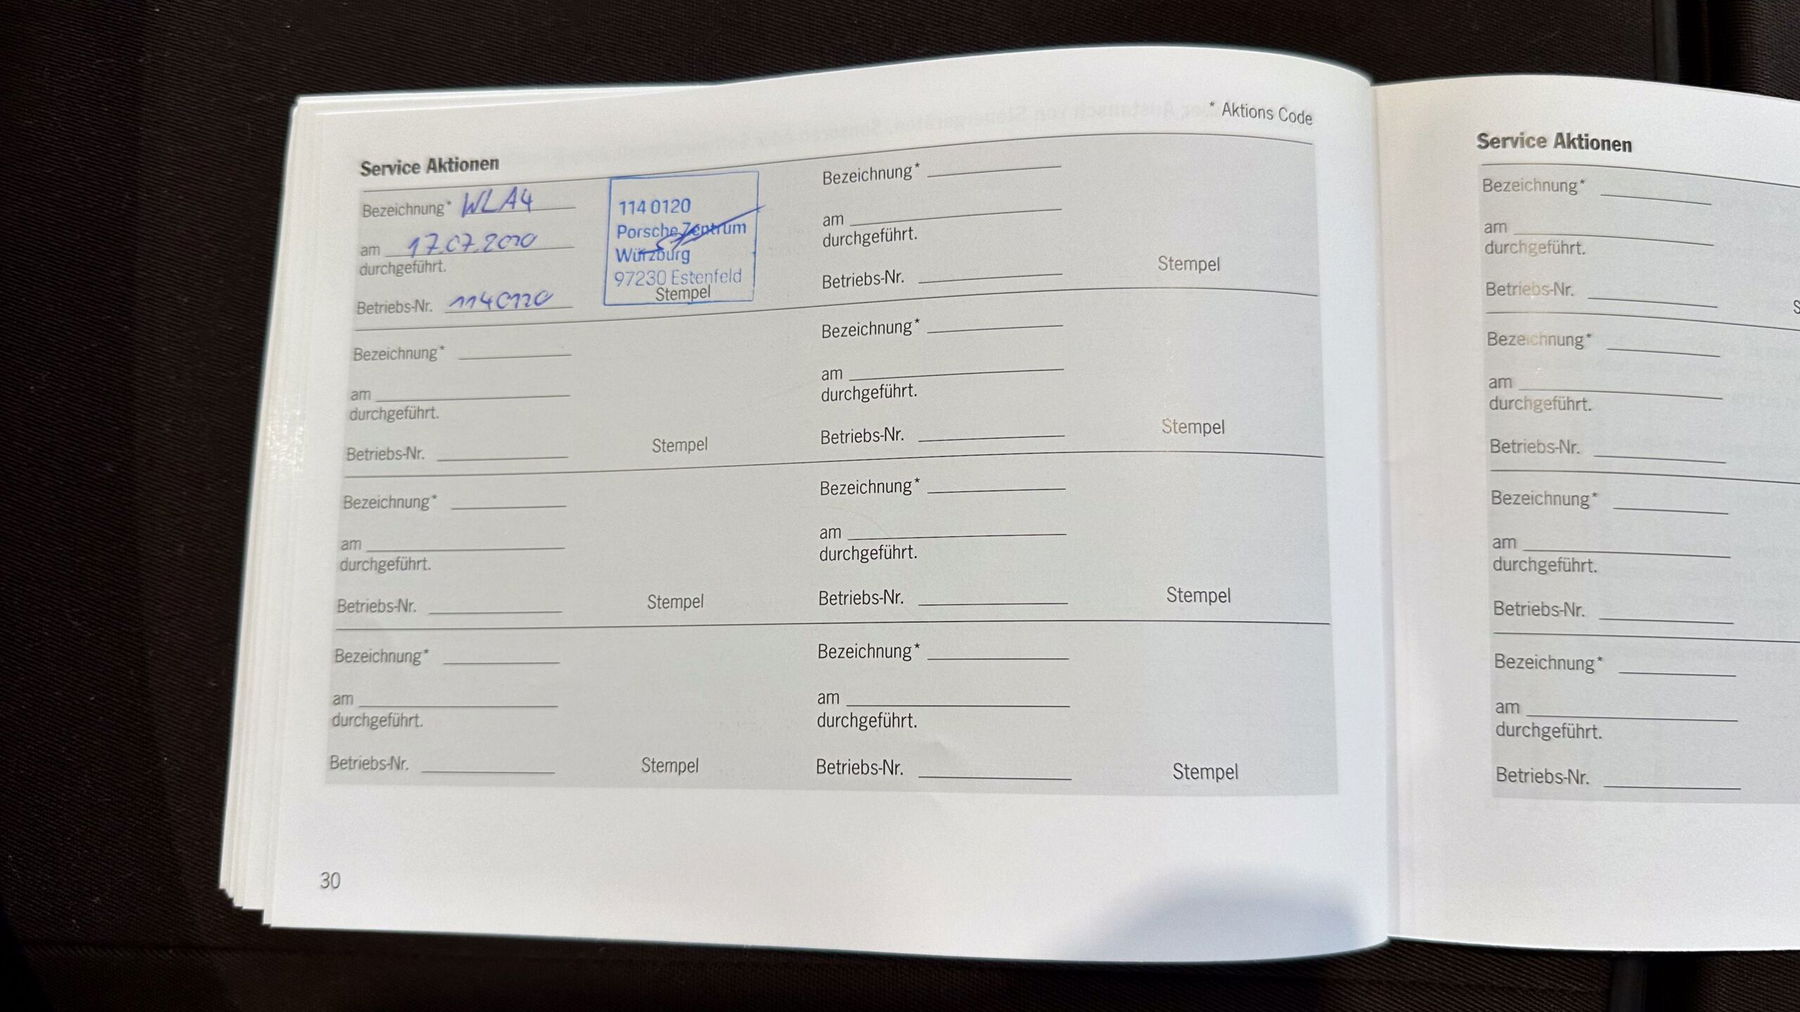 * Aktions Code
Service Aktionen
Bezeichnung* WLA4
am 17.07.2020
durchgeführt.
Betriebs-Nr. 1140120
114 0120
Porsche Zentrum
Würzburg
97230 Estenfeld
Stempel
Bezeichnung*
am
durchgeführt.
Betriebs-Nr.
Stempel
Bezeichnung*
am
durchgeführt.
Betriebs-Nr.
Stempel
Bezeichnung*
am
durchgeführt.
Betriebs-Nr.
Stempel
Bezeichnung*
am
durchgeführt.
Betriebs-Nr.
Stempel
Bezeichnung*
am
durchgeführt.
Betriebs-Nr.
Stempel
Bezeichnung*
am
durchgeführt.
Betriebs-Nr.
Stempel
Bezeichnung*
am
durchgeführt.
Betriebs-Nr.
Stempel
30
Service Aktionen
Bezeichnung*
am
durchgeführt.
Betriebs-Nr.
Bezeichnung*
am
durchgeführt.
Betriebs-Nr.
Bezeichnung*
am
durchgeführt.
Betriebs-Nr.
Bezeichnung*
am
durchgeführt.
Betriebs-Nr.